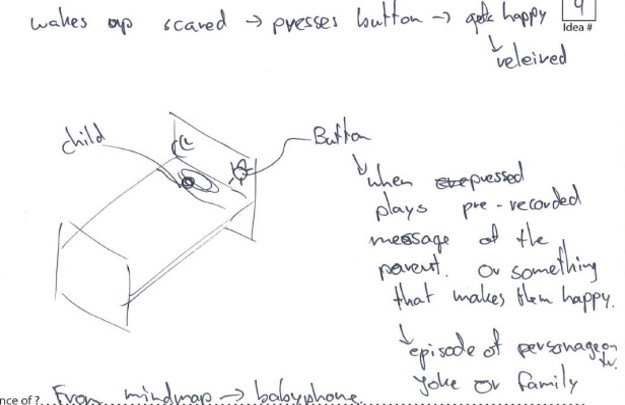 wakes up scared → presses button → gets happy
4
Idea #
releived
child
Button
when pressed
plays pre-recorded
message of the
parent. Or something
that makes them happy.
episode of personage on tv.
joke or family
nce of ?... From mindmap → babyphone